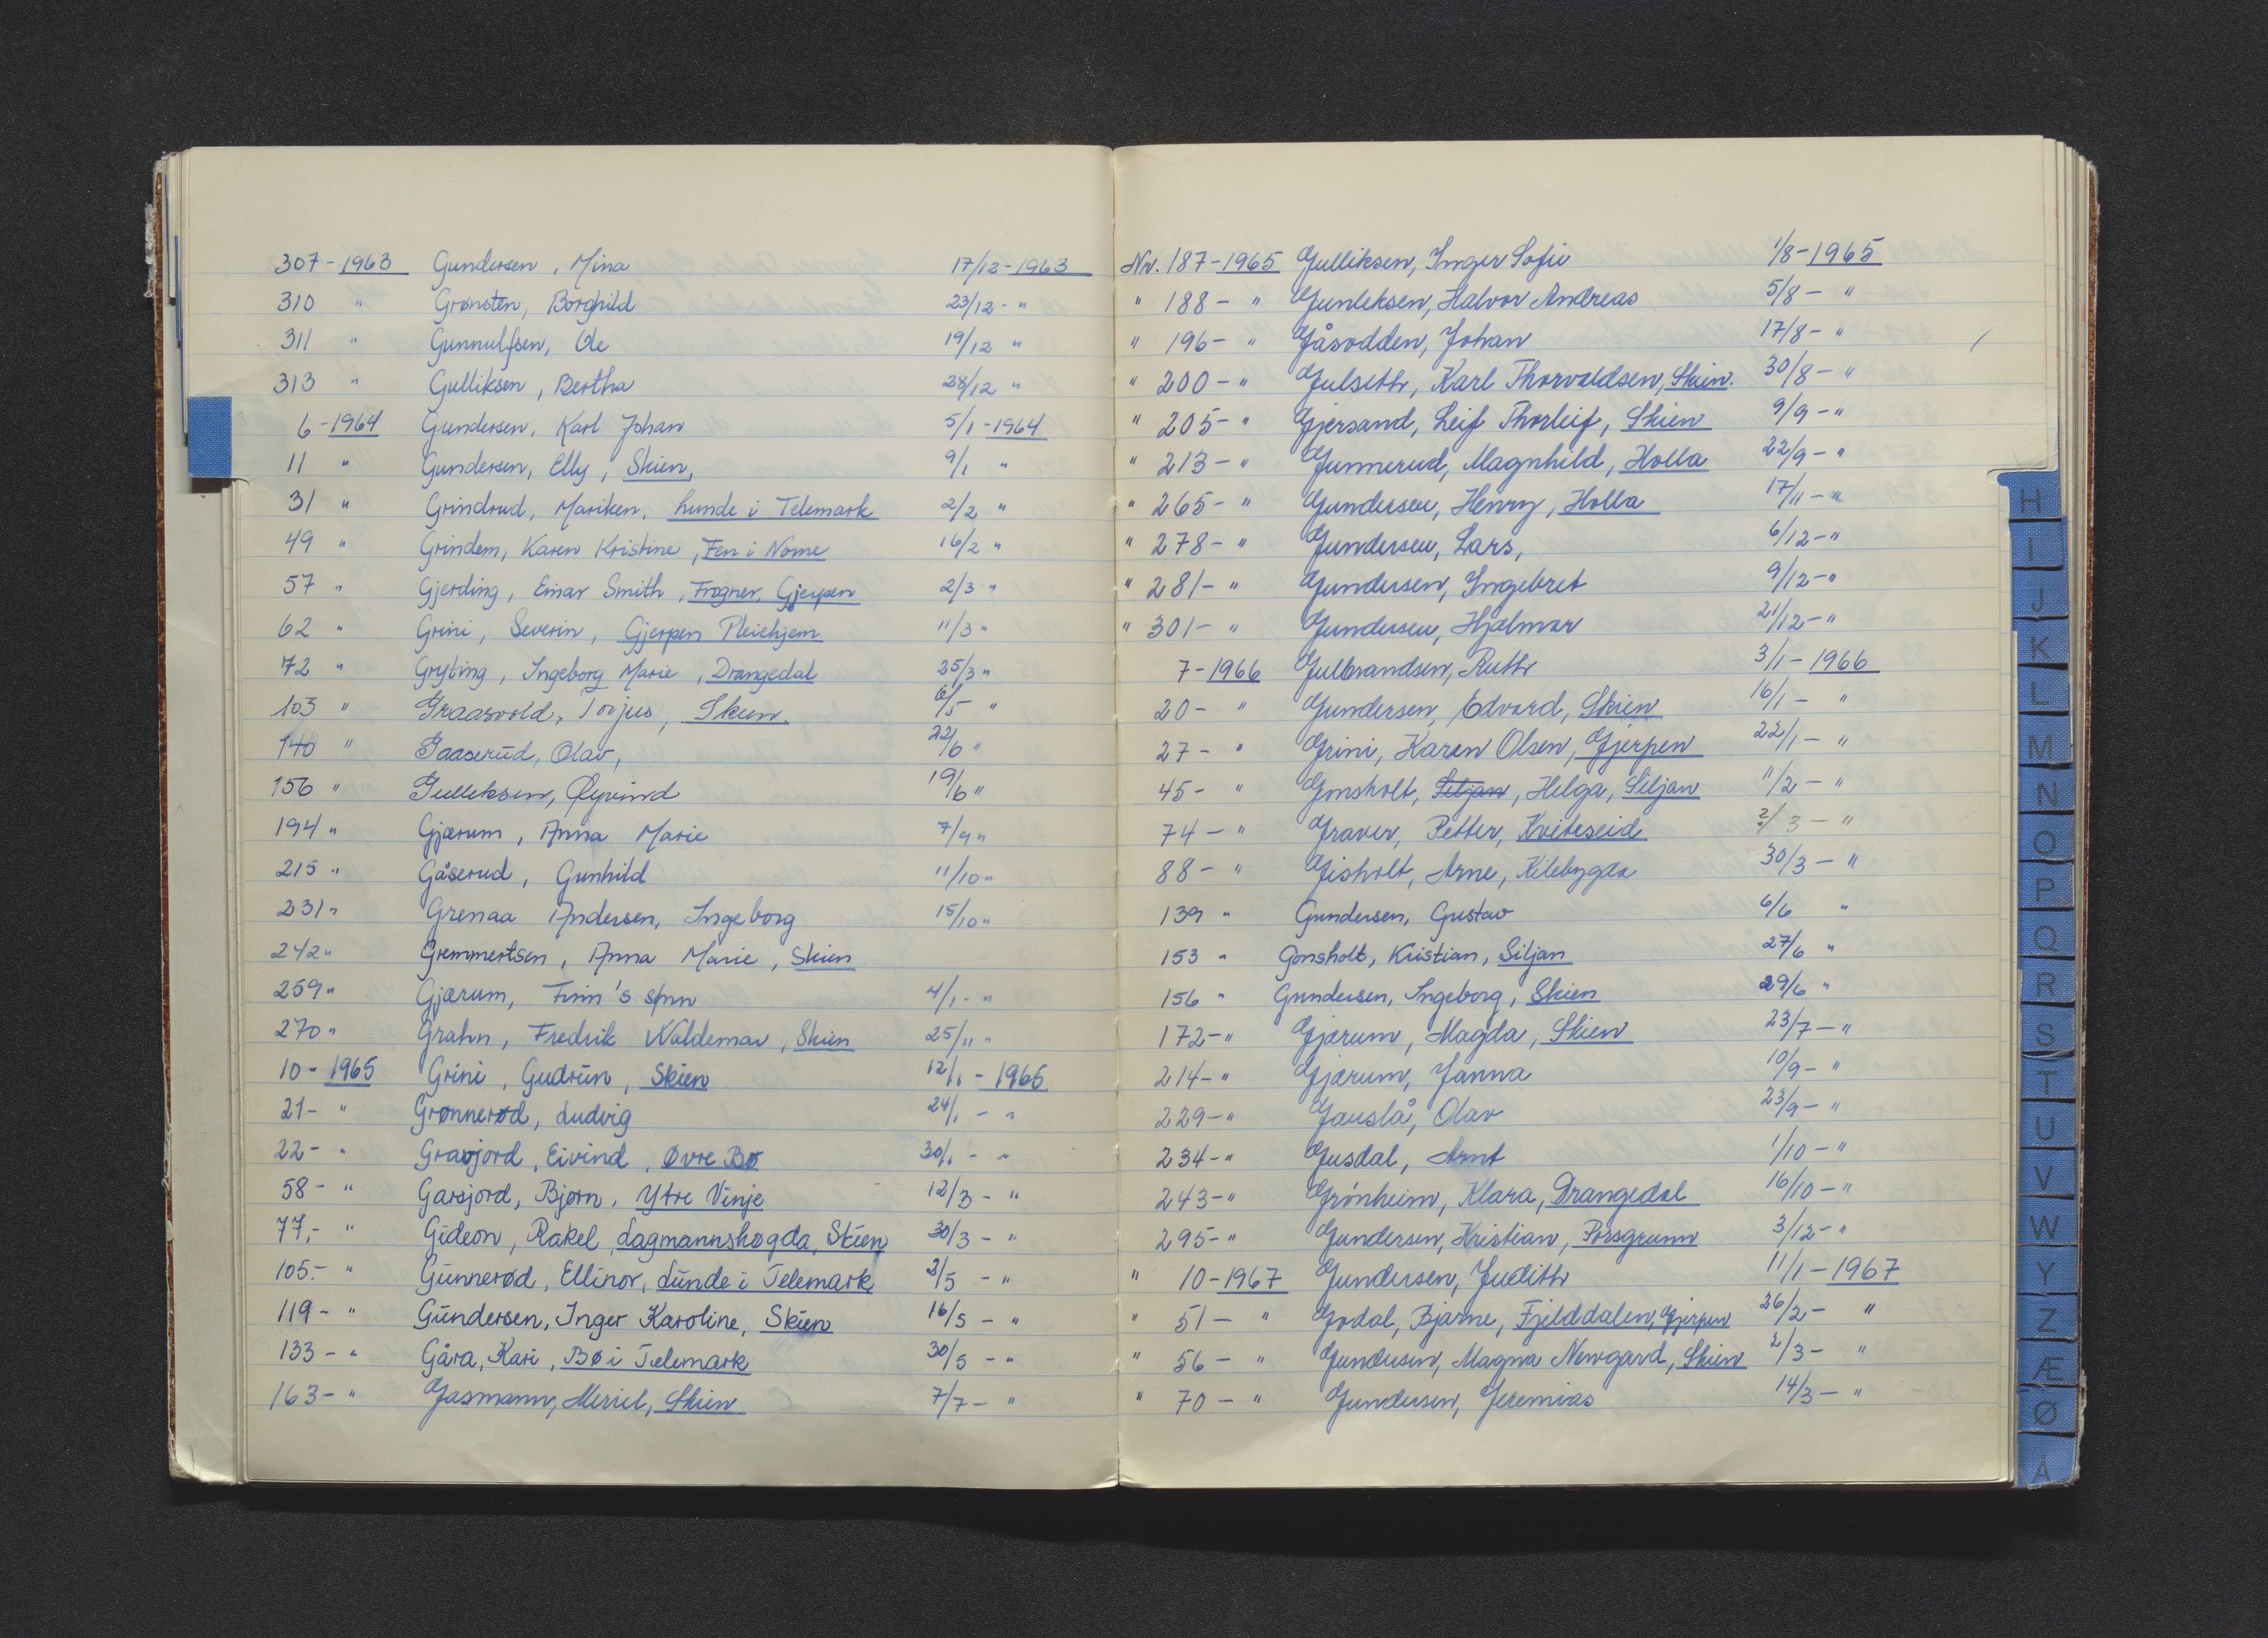 307 - 1963 Gundersen, Mina 17/12 - 1963
310 " Grønsten, Borghild 23/12 - "
311 " Gunnulfsen, Ole 19/12 "
313 " Gulliksen, Bertha 28/12 "
6 - 1964 Gundersen, Karl Johan 5/1 - 1964
11 " Gundersen, Elly, Skien, 9/1 "
31 " Grindrud, Mariken, Lunde i Telemark 2/2 "
49 " Grindem, Karen Kristine, Fen i Nome 16/2 "
57 " Gjerding, Einar Smith, Frogner, Gjerpen 2/3 "
62 " Grini, Severin, Gjerpen Pleiehjem 11/3 "
72 " Gryting, Ingeborg Marie, Drangedal 25/3 "
103 " Graasvold, Torjus, Skien. 6/5 "
140 " Gaaserud, Olav, 22/6 "
156 " Gulleksen, Øyvind 19/6 "
194 " Gjærum, Anna Marie 7/9 "
215 " Gåserud, Gunhild 11/10 "
231 " Grenaa Andersen, Ingeborg 15/10 "
242 " Gremmertsen, Anna Marie, Skien
259 " Gjærum, Finn's sønn 4/1 - "
270 " Grahn, Fredrik Waldemar, Skien 25/11 "
10 - 1965 Grini, Gudrun, Skien 12/1 - 1965
21 - " Grønnerød, Ludvig 24/1 - "
22 - " Gravjord, Eivind, Øvre Bø 30/1 - "
58 - " Garsjord, Bjørn, Ytre Vinje 12/3 - "
77,- " Gideon, Rakel, Lagmannshøgda, Skien 30/3 - "
105.- " Gunnerød, Ellinor, Lunde i Telemark 2/5 - "
119 - " Gundersen, Inger Karoline, Skien 16/5 - "
133 - " Gåra, Kari, Bø i Telemark 30/5 - "
163 - " Gasmann, Meriel, Skien 7/7 - "
Nr. 187 - 1965 Gulliksen, Inger Sofie 1/8 - 1965
" 188 - " Gunleksen, Halvor Andreas 5/8 - "
" 196 - " Gåsodden, Johan 17/8 - "
" 200 - " Gulseth, Karl Thorvaldsen, Skien. 30/8 - "
" 205 - " Gjersand, Leif Thorleif, Skien 9/9 - "
" 213 - " Gunnerud, Magnhild, Holla 22/9 - "
" 265 - " Gundersen, Henry, Holla 17/11 - "
" 278 - " Gundersen, Lars, 6/12 - "
" 281 - " Gundersen, Ingebret 9/12 - "
" 301 - " Gundersen, Hjalmar 21/12 - "
7 - 1966 Gulbrandsen, Ruth 3/1 - 1966
20 - " Gundersen, Edvard, Skien 16/1 - "
27 - " Grini, Karen Olsen, Gjerpen 22/1 - "
45 - " Gonsholt, Siljan, Helga, Siljan 11/2 - "
74 - " Graver, Petter, Kviteseid ?/3 - "
88 - " Gisholt, Arne, Kilebygda 30/3 - "
139 " Gundersen, Gustav 6/6 "
153 " Gonsholt, Kristian, Siljan 27/6 "
156 " Gundersen, Ingeborg, Skien 29/6 "
172 - " Gjærum, Magda, Skien 23/7 - "
214 - " Gjærum, Janna 10/9 - "
229 - " Gauslå, Olav 23/9 - "
234 - " Gusdal, Arnt 1/10 - "
243 - " Grónheim, Klara, Drangedal 16/10 - "
295 - " Gundersen, Kristian, Porsgrunn 3/12 - "
" 10 - 1967 Gundersen, Judith 11/1 - 1967
" 51 - " Godal, Bjarne, Fjelddalen, Gjerpen 26/2 - "
" 56 - " Gundersen, Magna Newgard, Skien 2/3 - "
" 70 - " Gundersen, Jeremias 14/3 - "
H
I
J
K
L
M
N
O
P
Q
R
S
T
U
V
W
Y
Z
Æ
Ø
Å